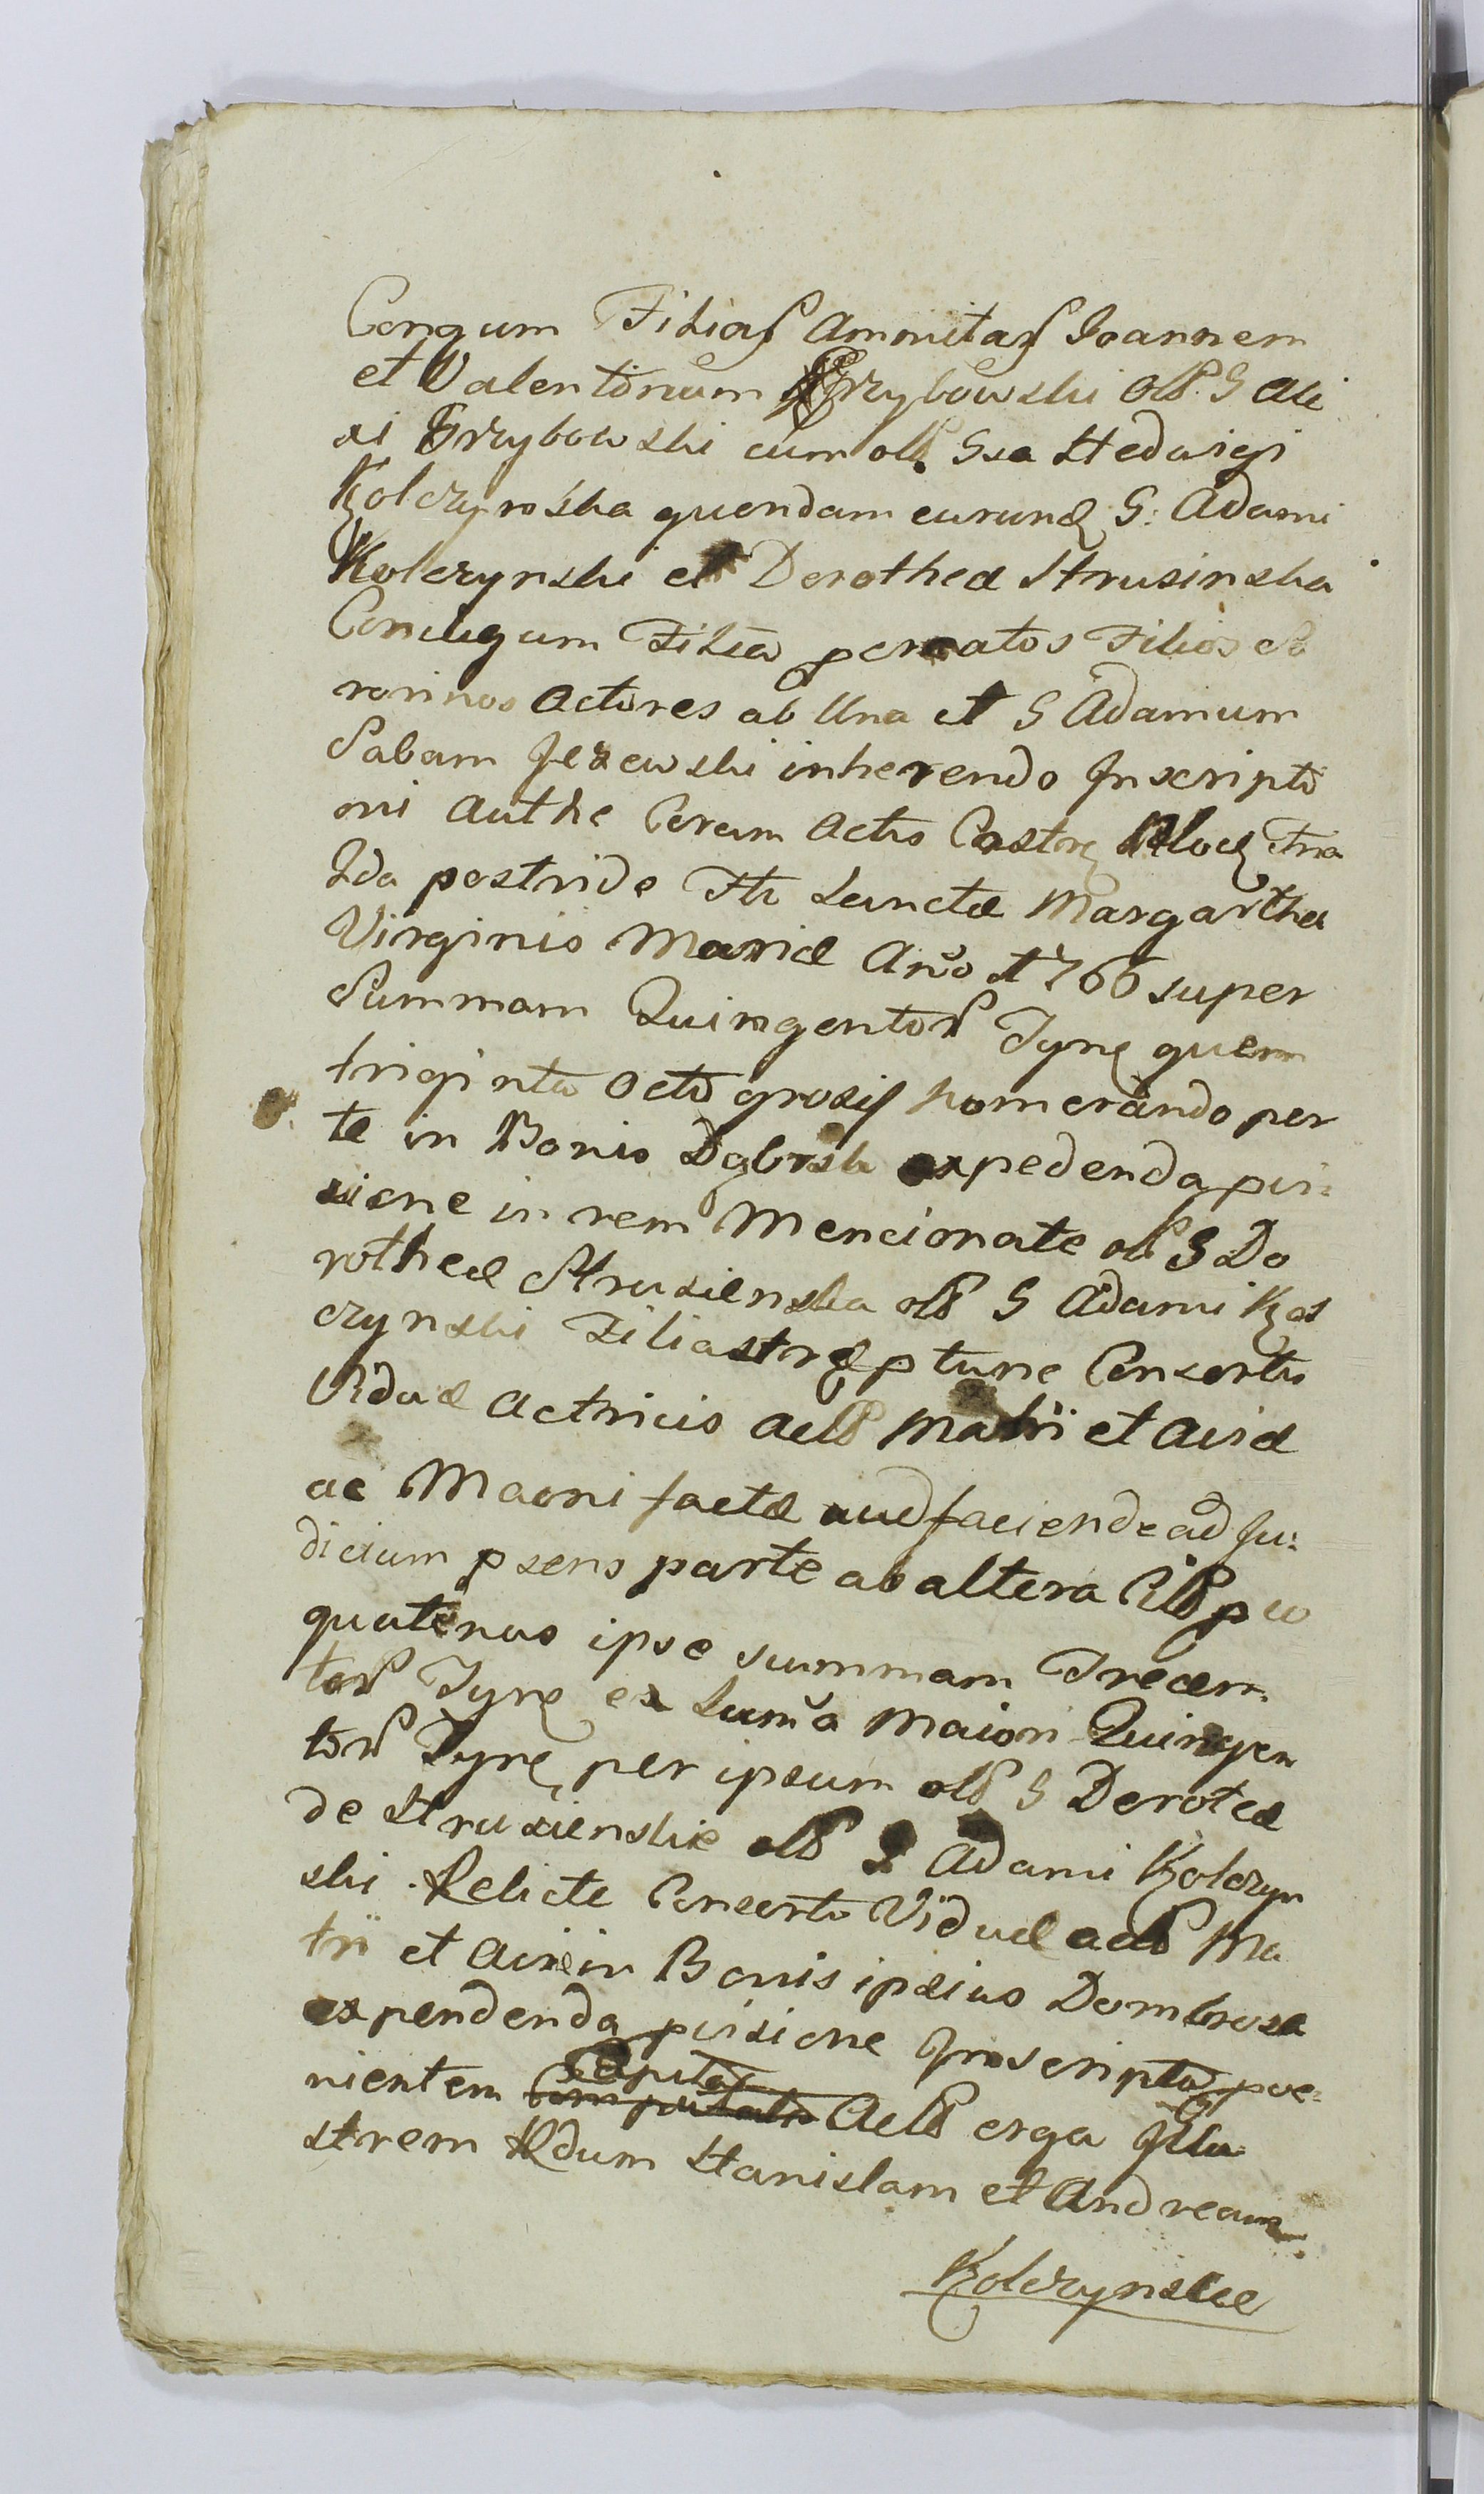 Congum Filias Ammitas Joannem
et Valentinum Grzybowski olb. G Ale
xi Grzybowski cum olb. Gsa Hedwigi
Kolczynska quendam eurund G: Adami
Kolczynski et Dorothea Strusinska
Coniugum Filia pcreatos Filios So
rorinos Actores ab Una et G Adamum
Sabam Jezewski inherendo Inscripti
oni Authe Coram Actis Castren Ploc Fria
2da postride Fti Sanctæ Margartha
Virginis Mariæ Año 1766 super
Summam Quingentor Tynf quem
triginta Octo grosis nomerando per
te in Bonis Dąbrsk expedenda pvi:
sione in rem Mencionate olb G Do
rotheæ Strusienska olb G Adami Kol
czynski Filiastr ptunc Consortis
Viduæ Actricis Aclb Matri et Aviæ
ac Maoni factæ aud faciende ad Ju:
dicium psens parte ab altera Cilb peo
quatenus ipse summam Trecen
tor Tynf ex Suma Maiori Quingen
tor Tynf per ipsum olb G Doroteæ
de Strusienskie olb G Adami Kolczyn
ski Relicte Consorti Viduæ aclb Ma
tri et Aviæ in Bonis ipsius Dombrosk
expendenda pvisione Inscripta pve:
nientem Computatis Capitas Aclb erga Illu
strem Rdum Stanislam et Andream
Kolczynskie